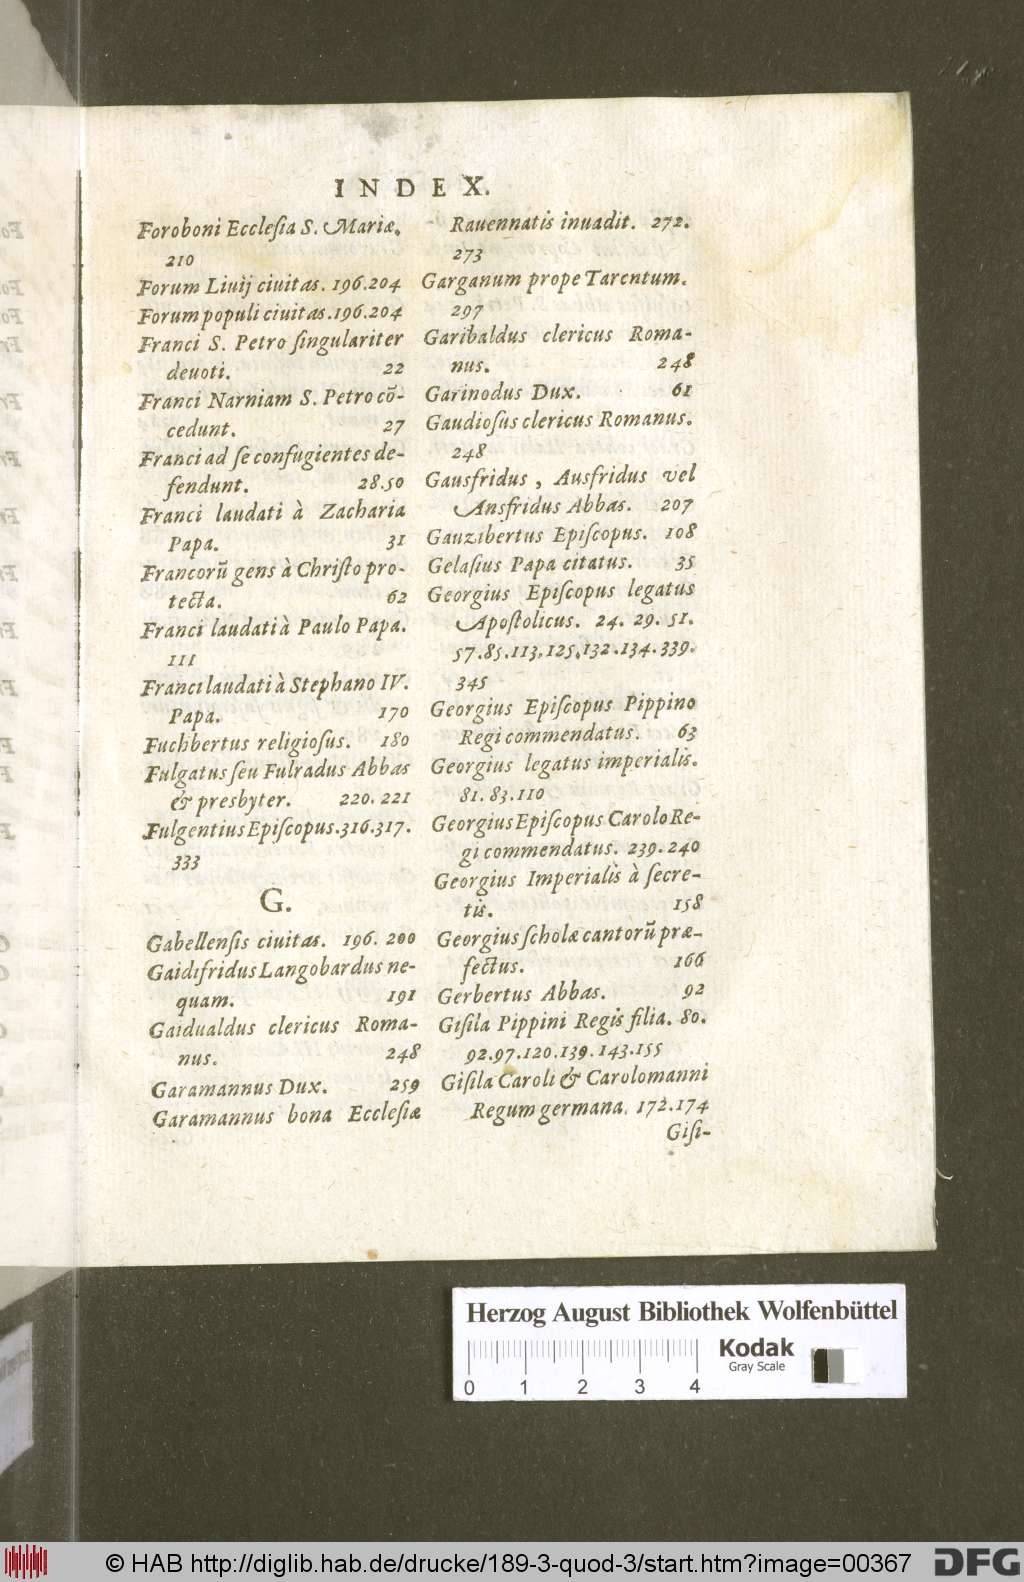 INDEX.
Foroboni Ecclesia S. Mariæ.
210
Forum Livij ciuitas. 196.204
Forum populi ciuitas. 196.204
Franci S. Petro singulariter
deuoti. 22
Franci Narniam S. Petro cõ-
cedunt. 27
Franci ad se confugientes de-
fendunt. 28.50
Franci laudati à Zacharia
Papa. 31
Francorũ gens à Christo pro-
tecta. 62
Franci laudati à Paulo Papa.
111
Franci laudati à Stephano IV.
Papa. 170
Fuchbertus religiosus. 180
Fulgatus seu Fulradus Abbas
& presbyter. 220.221
Fulgentius Episcopus. 316.317.
333
G.
Gabellensis ciuitas. 196. 200
Gaidifridus Langobardus ne-
quam. 191
Gaidualdus clericus Roma-
nus. 248
Garamannus Dux. 259
Garamannus bona Ecclesiæ
Rauennatis inuadit. 272.
273
Garganum prope Tarentum.
297
Garibaldus clericus Roma-
nus. 248
Garinodus Dux. 61
Gaudiosus clericus Romanus.
248
Gausfridus, Ausfridus vel
Ansfridus Abbas. 207
Gauzibertus Episcopus. 108
Gelasius Papa citatus. 35
Georgius Episcopus legatus
Apostolicus. 24. 29. 51.
57.85.113.125.132.134.339.
345
Georgius Episcopus Pippino
Regi commendatus. 63
Georgius legatus imperialis.
81.83.110
Georgius Episcopus Carolo Re-
gi commendatus. 239.240
Georgius Imperialis à secre-
tis. 158
Georgius scholæ cantorũ præ-
fectus. 166
Gerbertus Abbas. 92
Gisila Pippini Regis filia. 80.
92.97.120.139.143.155
Gisila Caroli & Carolomanni
Regum germana. 172.174
Gisi-
Herzog August Bibliothek Wolfenbüttel
Kodak
Gray Scale
0 1 2 3 4
© HAB http://diglib.hab.de/drucke/189-3-quod-3/start.htm?image=00367
DFG